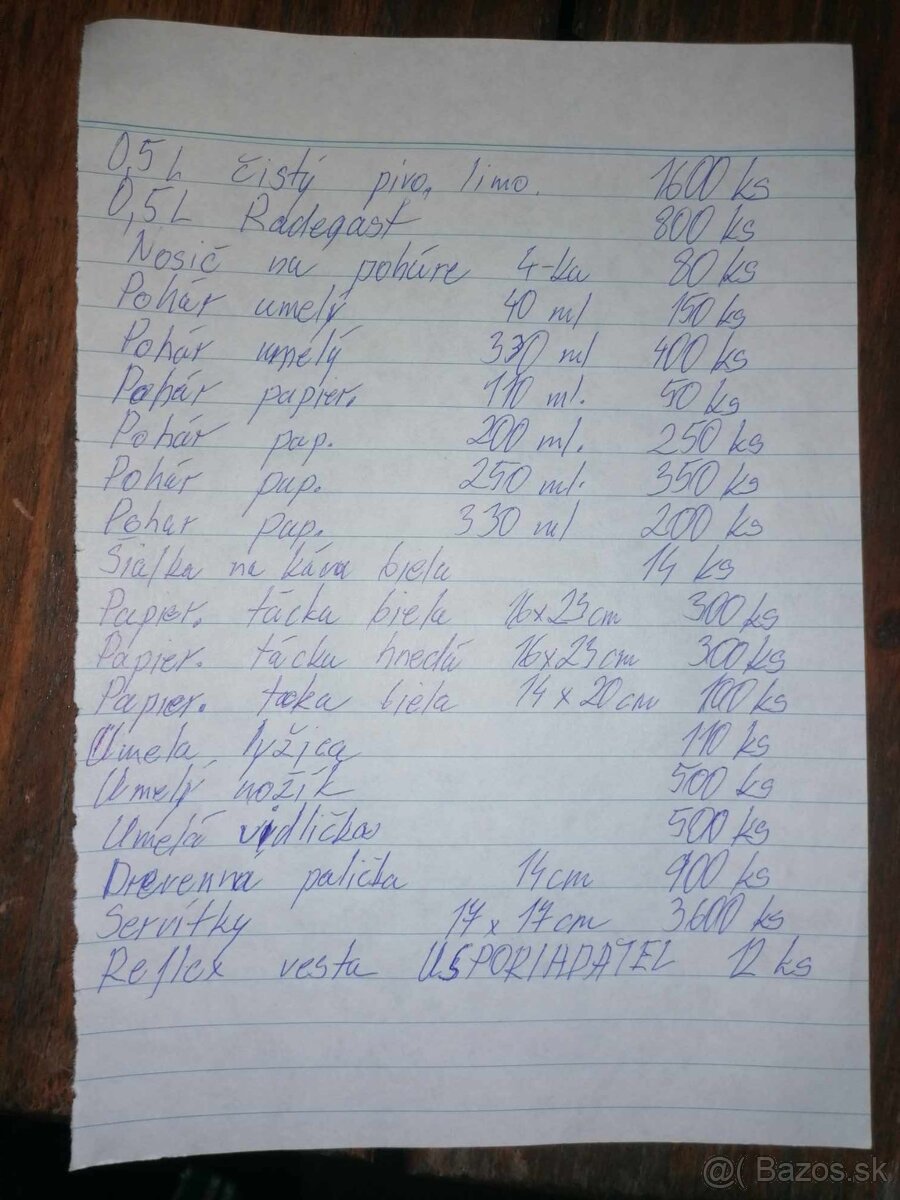 0,5 L čistý pivo, limo. 1600 ks
0,5 L Radegast 800 ks
Nosič na poháre 4-ka 80 ks
Pohár umelý 40 ml 150 ks
Pohár umelý 330 ml 400 ks
Pohár papier. 110 ml. 50 ks
Pohár pap. 200 ml. 250 ks
Pohár pap. 250 ml. 350 ks
Pohar pap. 330 ml 200 ks
Šialka na káva biela 14 ks
Papier. tácka biela 16x23cm 300 ks
Papier. tácka hnedá 16x23cm 300 ks
Papier. tacka biela 14 x 20cm 100 ks
Umela lyžica 110 ks
Umelý nožík 500 ks
Umelá vidlička 500 ks
Drevenna palička 14cm 900 ks
Servítky 17 x 17cm 3600 ks
Reflex vesta USPORIADATEL 12 ks
@( Bazos.sk